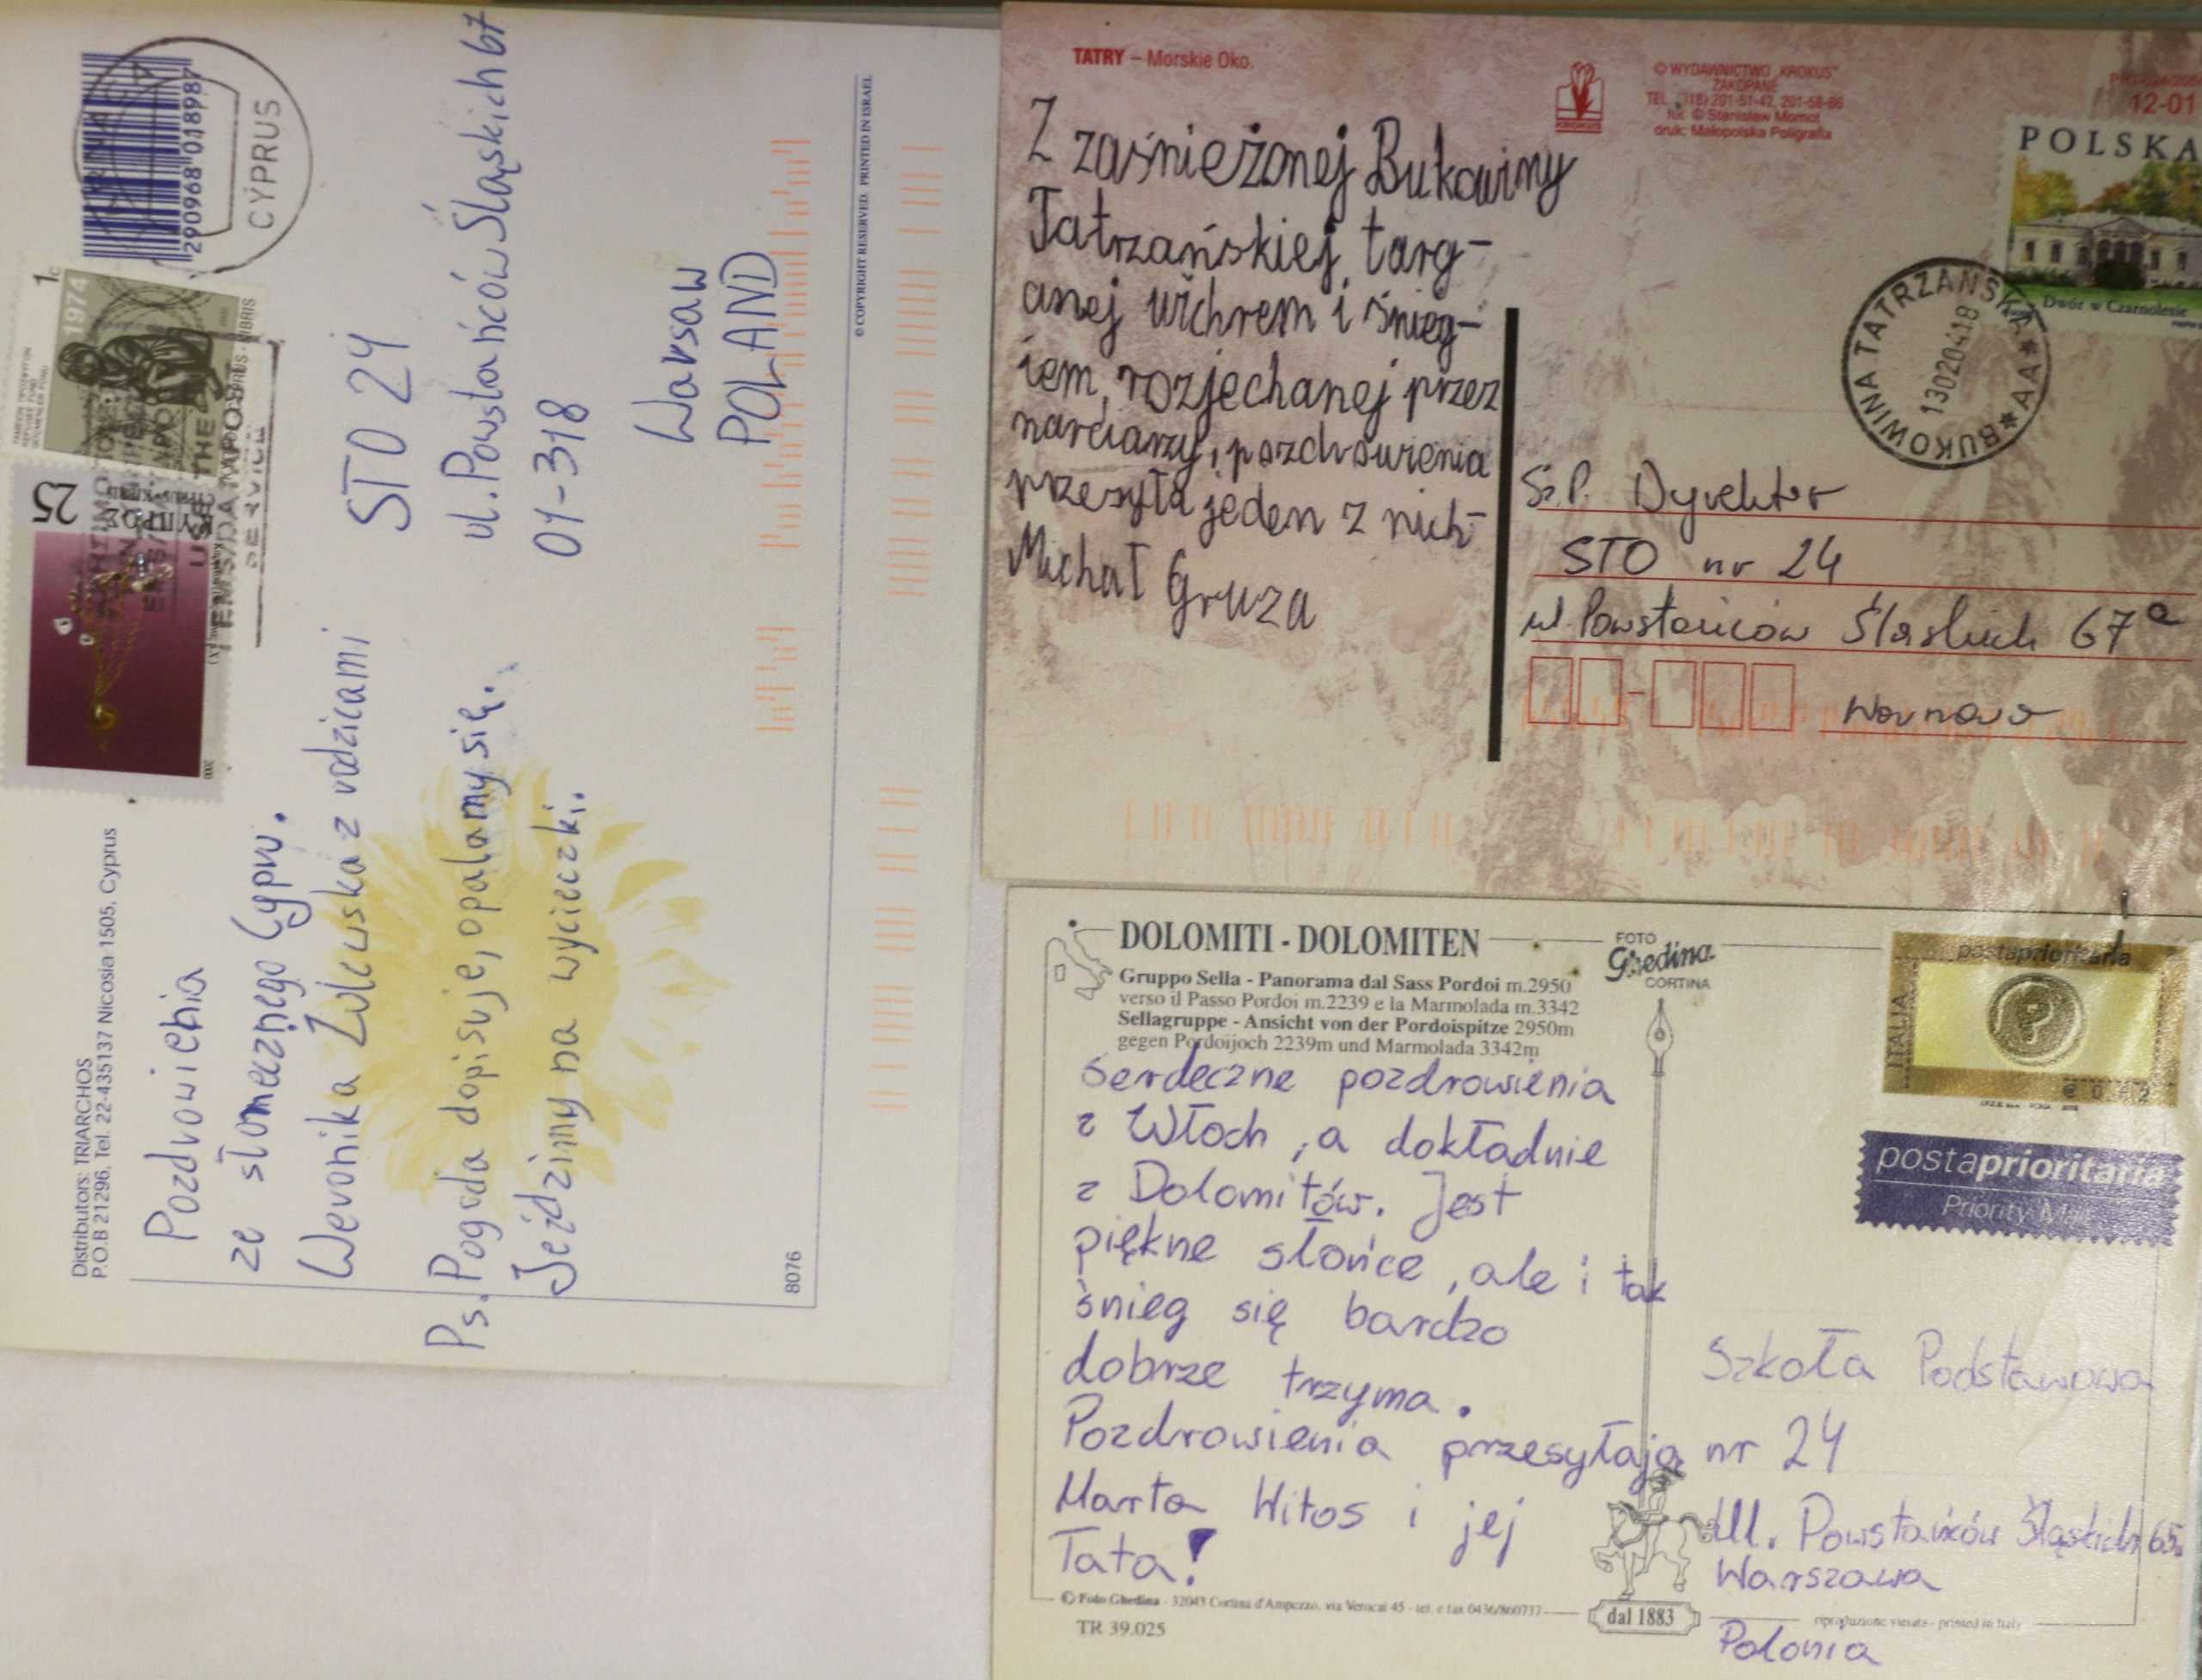 Distributors: TRIARCHOS
P.O.B 21296, Tel. 22-435137 Nicosia 1505, Cyprus
2 90968 018987
CYPRUS
1c
1974
25
2000
Pozdrowienia
ze słonecznego Cypru.
Weronika z rodzicami
Ps. Pogoda dopisuje, opalamy się.
Jeździmy na wycieczki.
STO 24
ul. Powstańców Śląskich 67
01-318
Warsaw
POLAND
8076
© COPYRIGHT RESERVED. PRINTED IN ISRAEL
TATRY – Morskie Oko.
© WYDAWNICTWO „KROKUS”
ZAKOPANE
TEL. (18) 201-51-42, 201-58-66
fot. © Stanisław Momot
druk: Małopolska Poligrafia
KROKUS
12-01
POLSKA
Dwór w Czarnolesie
BUKOWINA TATRZAŃSKA ★ AA ★
130204.18
Z zaśnieżonej Bukowiny
Tatrzańskiej, targ-
anej wichrem i śnieg-
iem, rozjechanej przez
narciarzy, pozdrowienia
przesyła jeden z nich-
Michał Gruza
Sz.P. Dyrektor
STO nr 24
ul. Powstańców Śląskich 67a
Warszawa
DOLOMITI - DOLOMITEN
Gruppo Sella - Panorama dal Sass Pordoi m.2950
verso il Passo Pordoi m.2239 e la Marmolada m.3342
Sellagruppe - Ansicht von der Pordoispitze 2950m
gegen Pordoijoch 2239m und Marmolada 3342m
FOTO
Ghedina
CORTINA
postaprioritaria
ITALIA
€ 0,62
postaprioritaria
Priority Mail
Serdeczne pozdrowienia
z Włoch, a dokładnie
z Dolomitów. Jest
piękne słońce, ale i tak
śnieg się bardzo
dobrze trzyma.
Pozdrowienia przesyłają
Marta Witos i jej
Tata!
Szkoła Podstawowa
nr 24
Ul. Powstańców Śląskich 65
Warszawa
Polonia
© Foto Ghedina - 32043 Cortina d'Ampezzo, via Verocai 45 - tel. e fax 0436/860737
dal 1883
riproduzione vietata - printed in Italy
TR 39.025